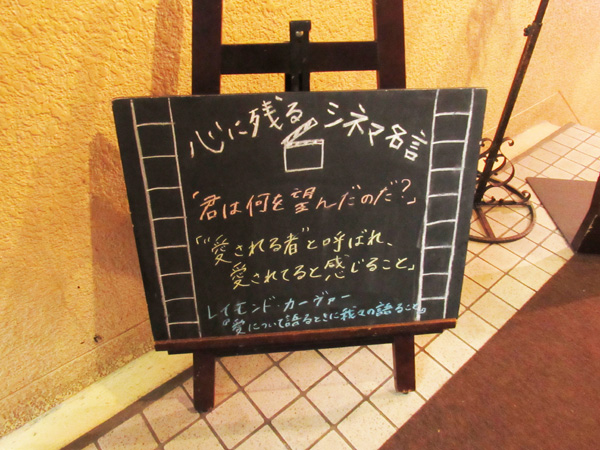 心に残るシネマ名言
「君は何を望んだのだ?」
「"愛される者"と呼ばれ、
愛されてると感じること」
レイモンド・カーヴァー
『愛について語るときに我々の語ること』